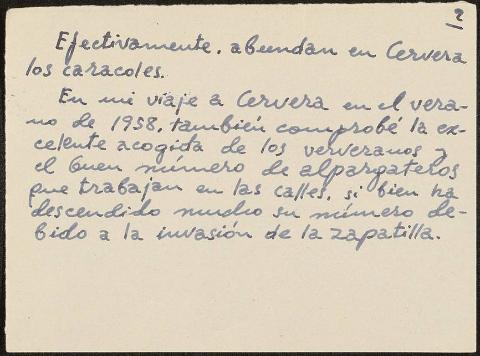 2
Efectivamente, abundan en Cervera
los caracoles.
En mi viaje a Cervera en el vera-
no de 1958, también comprobé la ex-
celente acogida de los ververanos y
el buen número de alpargateros
que trabajan en las calles, si bien ha
descendido mucho su número de-
bido a la invasión de la zapatilla.